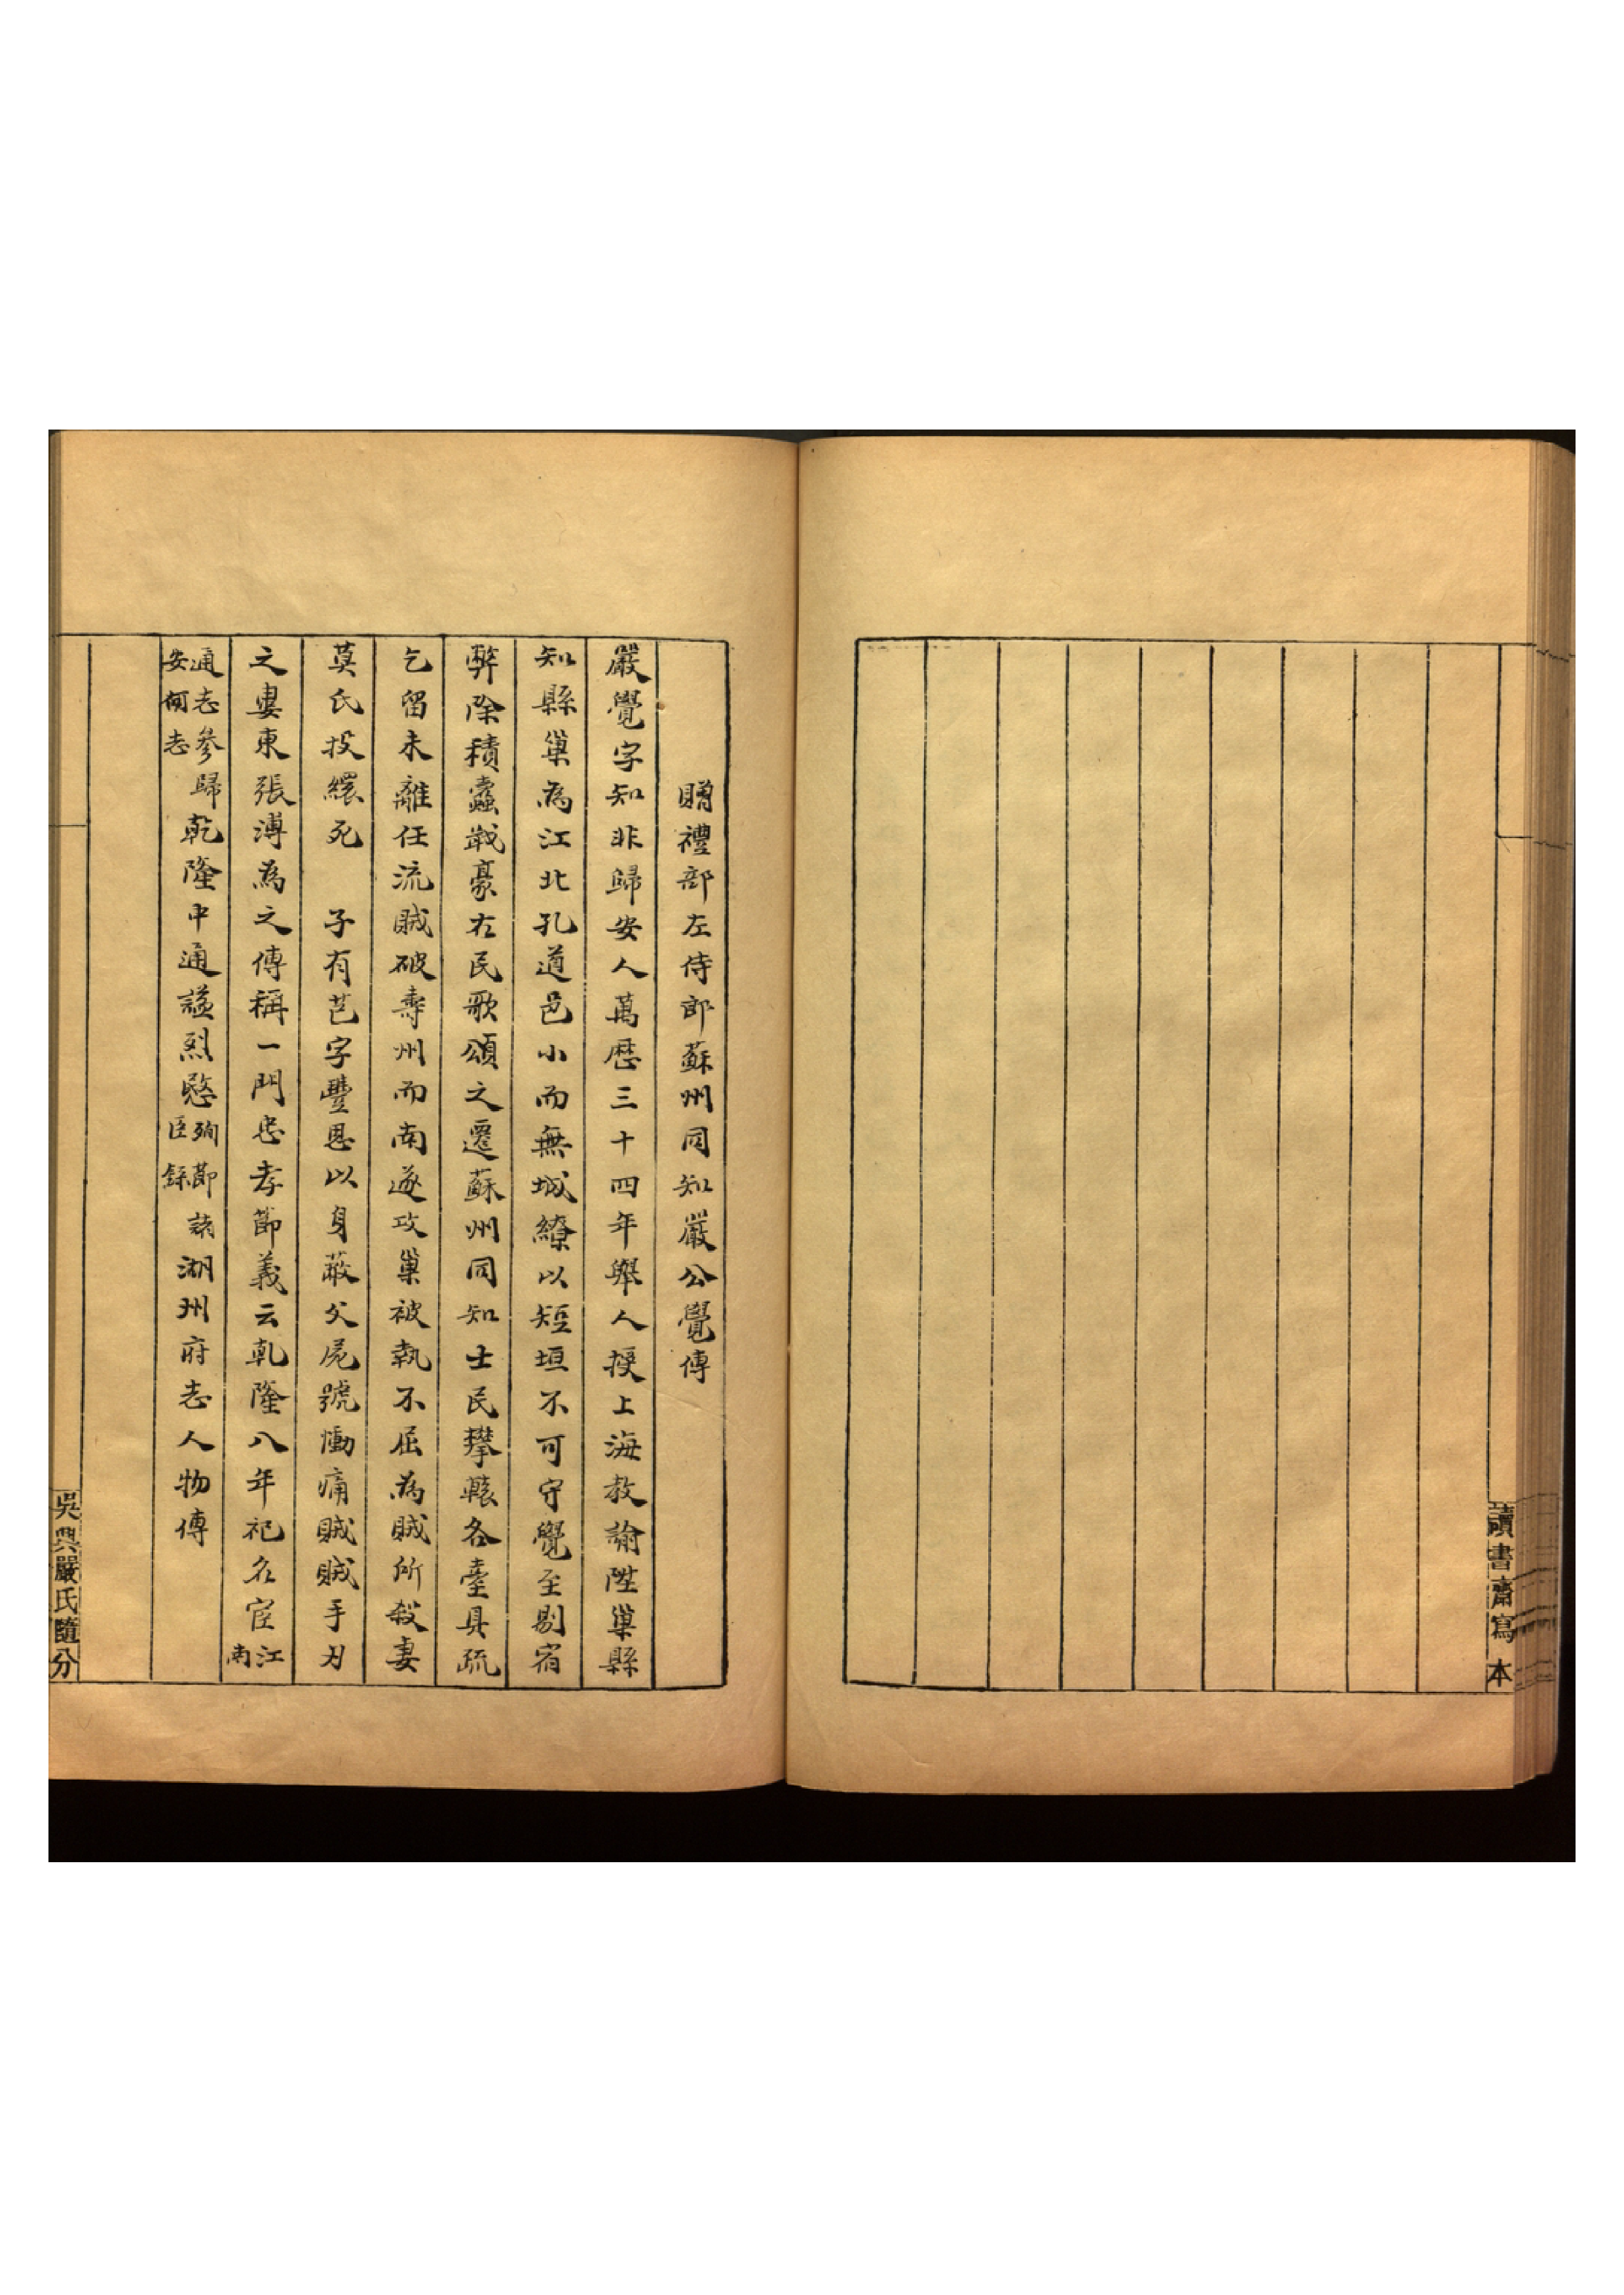 讀書齋寫本
贈禮部左侍郎蘇州同知嚴公覺傳
嚴覺字知非歸安人萬歷三十四年舉人授上海教諭陞巢縣
知縣巢為江北孔道邑小而無城繚以短垣不可守覺至剔宿
弊除積蠹戢豪右民歌頌之遷蘇州同知士民攀轅各臺具疏
乞留未離任流賊破壽州而南遂攻巢被執不屈為賊所殺妻
莫氏投繯死 子有芑字豐恩以身蔽父屍號慟痛賊賊手刃
之婁東張溥為之傳稱一門忠孝節義云乾隆八年祀名宦江南
通志參歸安何志乾隆中通謚烈愍殉節諸臣錄湖州府志人物傳
吳興嚴氏隨分